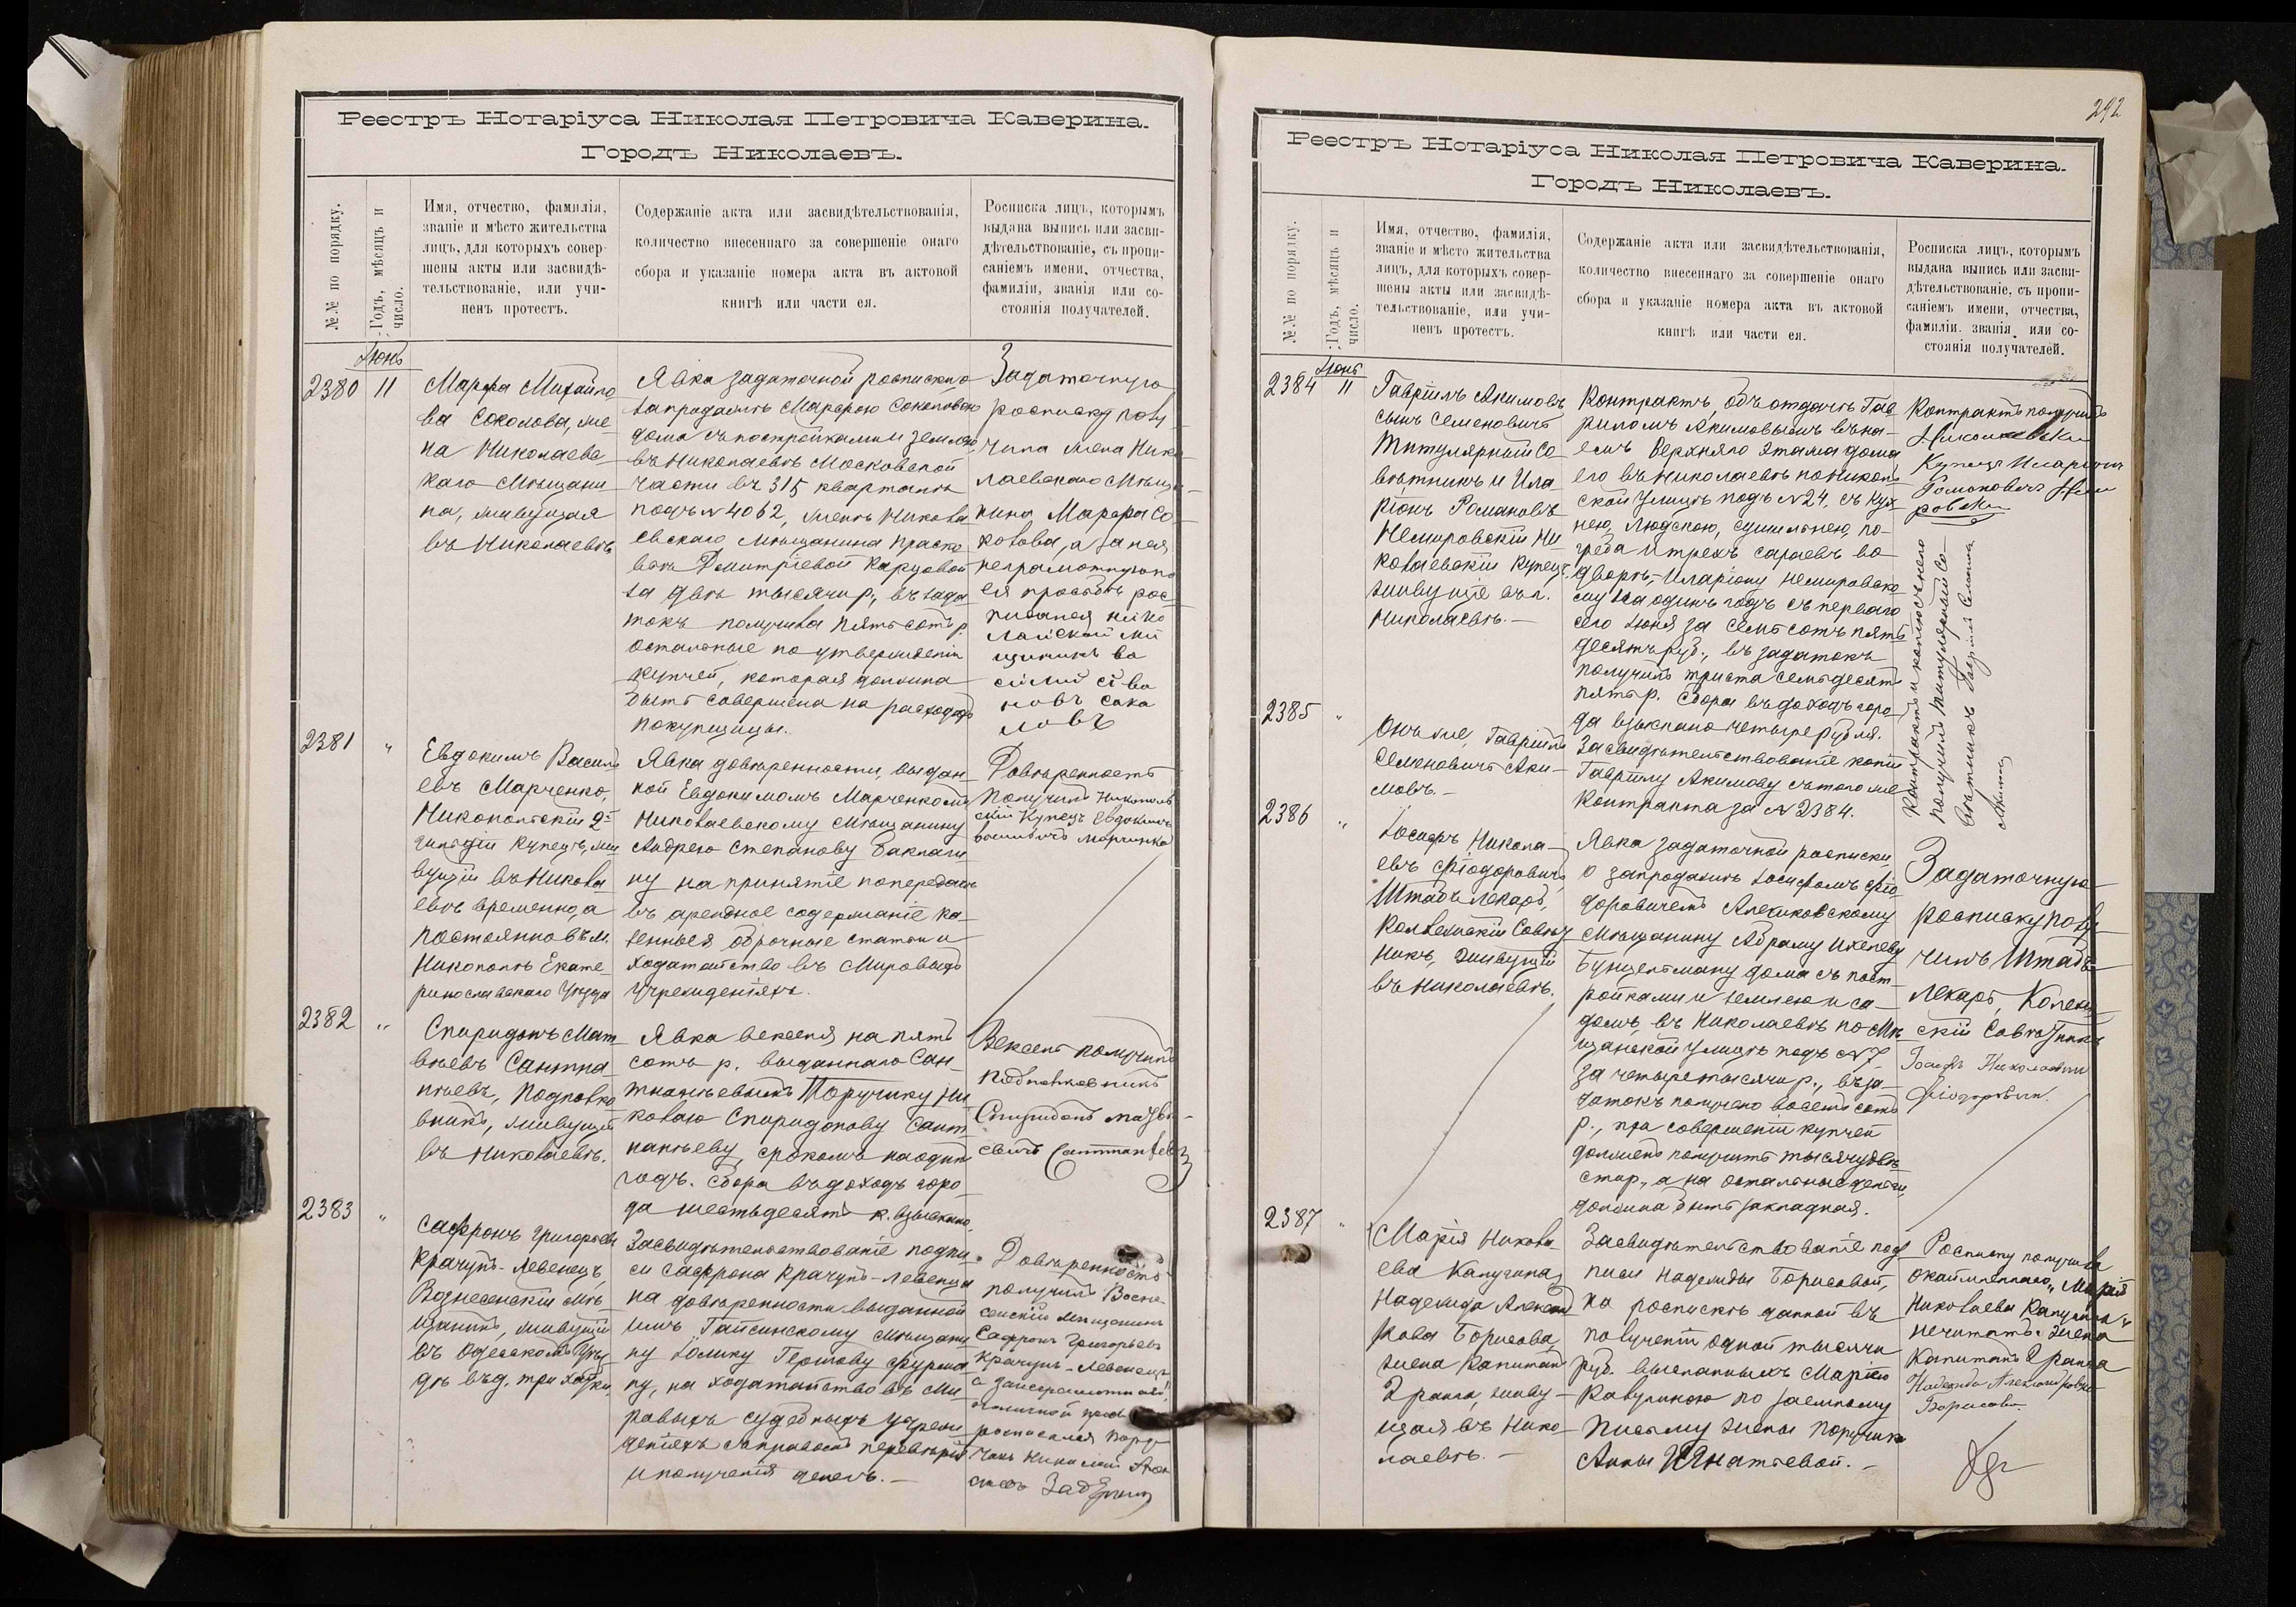 Реестръ Нотаріуса Николая Петровича Каверина.
Городъ Николаевъ.
№№ по порядку.
Годъ, мѣсяцъ и
число.
Имя, отчество, фамилія,
званіе и мѣсто жительства
лицъ, для которыхъ совер-
шены акты или засвидѣ-
тельствованіе, или учи-
ненъ протестъ.
Содержаніе акта или засвидѣтельствованія,
количество внесеннаго за совершеніе онаго
сбора и указаніе номера акта въ актовой
книгѣ или части ея.
Росписка лицъ, которымъ
выдана выпись или засви-
дѣтельствованіе, съ пропи-
саніемъ имени, отчества,
фамиліи, званія или со-
стоянія получателей.
Іюнь
2380 11
Марфа Михайло-
ва Соколова, же-
на Николаев-
скаго Мѣщани-
на, живущая
въ Николаевѣ
Явка задаточной росписки о
запродажѣ Марфою Соколовою
дома съ постройками и землею,
въ Николаевѣ Московской
части въ 315 кварталѣ
подъ №4062, женѣ Никола-
евскаго мѣщанина Праско-
вьѣ Дмитріевой Карцовой
за двѣ тысячи р., въ зада-
токъ получила пятьсотъ р.
остальные по утвержденіи
купчей, которая должна
быть совершена на расходъ
покупщицы.
Задаточную
росписку полу-
чила жена Нико-
лаевскаго Мѣща-
нина Марфа Со-
колова, а за нея
неграмотную по
ея просьбѣ рос-
писался нико
лайской ми
щининъ ва
силий
новъ сака
ловъ
2381 "
Евдокимъ Василь-
евъ Марченко,
Никопольскій 2й
гильдіи Купецъ, жи-
вущій въ Никола-
евѣ временно, а
постоянно въ м.
Никополѣ Екате-
ринославскаго Уѣзда
Явка довѣренности, выдан-
ной Евдокимомъ Марченкомъ
Николаевскому мѣщанину
Андрею Степанову Баклаги-
ну на принятіе по передачѣ
въ арендное содержаніе ка-
зенныя оброчныя статьи и
ходатайство въ Мировыхъ
Учрежденіяхъ.
Довѣренность
Получилъ Никополь
скій Купецъ Евдокимъ
васильевъ марченко
2382 "
Спиридонъ Мат-
вѣевъ Сантпа-
нтьевъ, Подполко-
вникъ, живущій
въ Николаевѣ.
Явка векселя на пять
сотъ р. выданнаго Сан-
Поручику Ни-
колаю Спиридонову Сант-
пантьеву, срокомъ на одинъ
годъ. Сбора въ доходъ горо-
да шестьдесятъ к. взыскано.
Вексель получилъ
подполковникъ
Спиридонъ матвѣ-
евичъ
2383 "
Сафронъ Григорьевъ
Крачунъ-Левенецъ,
Вознесенскій мѣ-
щанинъ, живущій
въ Одесскомъ Уѣз-
дѣ въ д. три хатки.
Засвидѣтельствованіе подпи-
си Сафрона Крачунъ-Левенца
на довѣренности выданной
имъ Гайсинскому мѣщани-
ну Іолику Гершову Фурма-
ну, на ходатайство въ Ми-
ровыхъ судебныхъ Учреж-
деніяхъ съ правомъ передовѣрія
и полученія денегъ. —
Довѣренность
получилъ Возне-
сенскій мѣщанинъ
Сафронъ Григорьевъ
Крачунъ-Левенецъ
росписался Пору-
чикъ Николай
292
Реестръ Нотаріуса Николая Петровича Каверина.
Городъ Николаевъ.
№№ по порядку.
Годъ, мѣсяцъ и
число.
Имя, отчество, фамилія,
званіе и мѣсто жительства
лицъ, для которыхъ совер-
шены акты или засвидѣ-
тельствованіе, или учи-
ненъ протестъ.
Содержаніе акта или засвидѣтельствованія,
количество внесеннаго за совершеніе онаго
сбора и указаніе номера акта въ актовой
книгѣ или части ея.
Росписка лицъ, которымъ
выдана выпись или засви-
дѣтельствованіе, съ пропи-
саніемъ имени, отчества,
фамиліи, званія или со-
стоянія получателей.
Іюнь
2384 11
Гавріилъ Акимовъ
сынъ Семеновичъ
Титулярный Со-
вѣтникъ и Ила-
ріонъ Романовъ
Немировскій Ни-
колаевскій Купецъ
живущіе въ г.
Николаевѣ. —
Контрактъ, объ отдачѣ Гав-
риломъ Акимовымъ въ на-
емъ Верхняго этажа дома
его въ Николаевѣ по Николь-
ской Улицѣ подъ №24, съ кух-
нею, людскою, сушильнею, по-
греба и трехъ сараевъ во
дворѣ, Иларіону Немировско-
му на одинъ годъ съ перваго
сего Іюня за семьсотъ пять
десятъ руб., въ задатокъ
получилъ триста семьдесятъ
пять р. Сбора въ доходъ горо-
да взыскано четыре рубля.
Контрактъ получилъ
Николаевский
Купецъ Иларіонъ
Романовичъ Неми
ровский
2385 "
Онъ же, Гавріилъ
Семеновичъ Аки-
мовъ. —
Засвидѣтельствованіе копіи
Гавріилу Акимову съ того же
Контракта за №2384.
Контрактъ и копію съ него
получилъ Титулярный Со-
вѣтникъ Гавріилъ Семенов
Акимовъ
2386 "
Іосифъ Никола-
евъ Фіодоровичъ,
Штабъ Лекарь,
Коллежскій Совѣт-
никъ, живущій
въ Николаевѣ.
Явка задаточной росписки
о запродажѣ Іосифомъ Фіо-
доровичемъ Алешковскому
Мѣщанину Абраму Ихелеву
Бунцельману дома съ пост-
ройками и землею и са-
домъ, въ Николаевѣ по Мѣ-
щанской Улицѣ подъ №7
за четыре тысячи р., въ за-
датокъ получено восемьсотъ
р., при совершеніи купчей
долженъ получить тысячу двѣ
сти р., а на остальные деньги
должна быть закладная.
Задаточную
росписку полу-
чилъ Штабъ-
лекарь, Коллеж-
скій Совѣтникъ
Іосифъ Николаевичъ
Фіодоровичъ.
2387 "
Марія Никола-
ева Капугина,
Надежда Александ-
рова Борисова,
жена Капитана
2 ранга, живу-
щая въ Нико-
лаевѣ. —
Засвидѣтельствованіе под-
писи Надежды Борисовой,
на роспискѣ данной въ
полученіи одной тысячи
руб. высланныхъ Маріею
Капугиною по заемному
письму жены Поручика
Анны Игнатьевой. —
Росписку получила
окаймленнаго „Марія
Николаева Капугина"
не читать. Жена
Капитана 2 ранга
Надежда Александровна
Борисова.